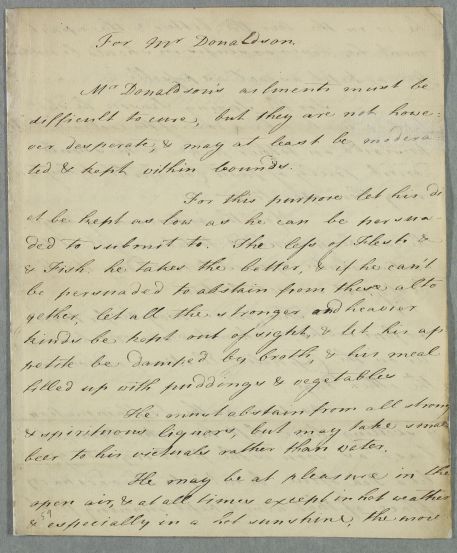 For Mr Donaldson.
Mr Donaldson's ailments must be
difficult to cure, but they are not howe-
ver desperate, & may at least be modera-
ted & kept within bounds.
For this purpose let his di
et be kept as low as he can be persua-
ded to submit to. The less of Flesh &
& Fish he takes the better, & if he can't
be persuaded to abstain from these alto
gether, let all the stronger and heavier
kinds be kept out of sight, & let his ap
petite be damped by broth, & his meal
filled up with puddings & vegetables
He must abstain from all strong
& spirituous liquors, but may take small
beer to his victuals rather than water.
He may be at pleasure in the
open air, & at all times except in hot weather
& especially in a hot sunshine, the more